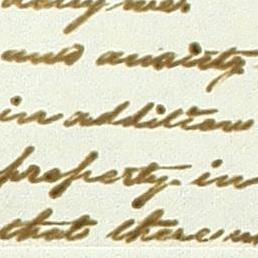 and anxiety
in addition
property in
that there